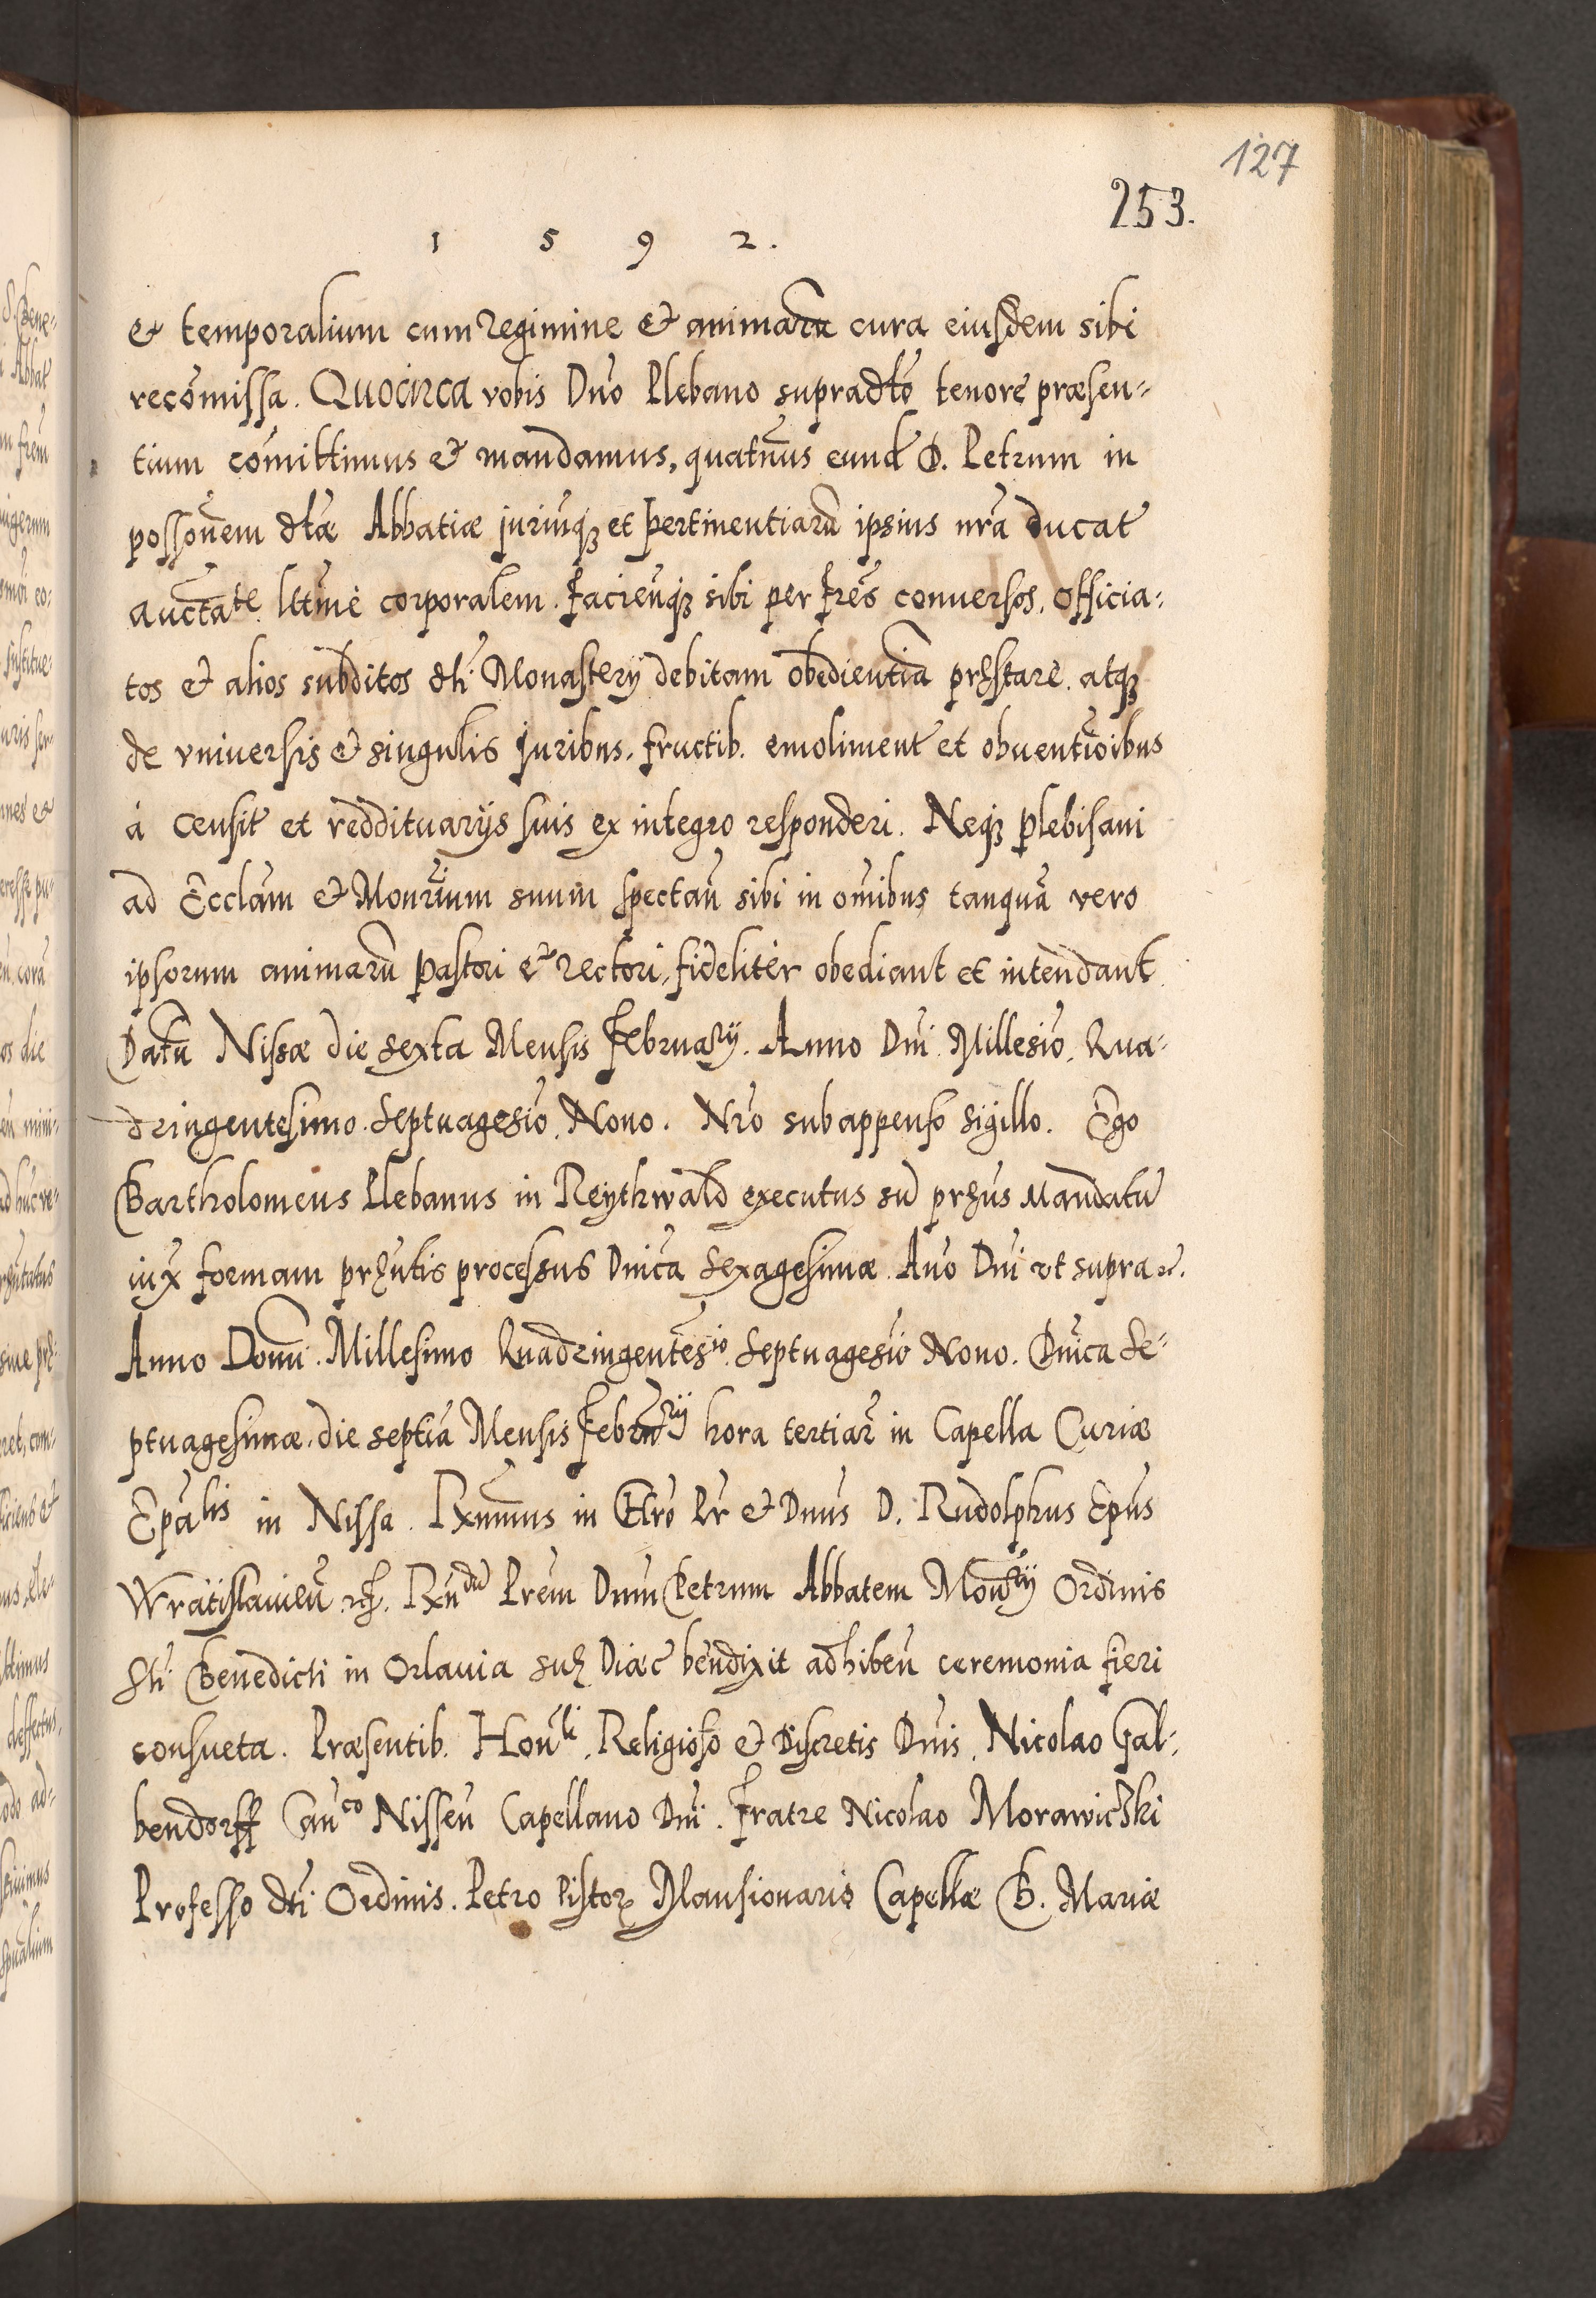 127
253.
1 5 9 2.
et temporalium cum regimine et animarū cura eiusdem sibi
recōmissa. Quocirca vobis Dño Plebano supradcto tenore præsen-
tium cōmittimus et mandamus, quatn̄us eund D. Petrum in
possoñem dctæ Abbatiæ juriūqꝫ et pertinentiarū ipsius nrā ducat
auctate lttme corporalem. facieñqꝫ sibi per fres conuersos, officia-
tos et alios subditos dcti Monasterÿ debitam obedientiā prȩstare. atqꝫ
de vniuersis et singulis juribus, fructib. emoliment et obuentioibus
á Censit et reddituarÿs suis ex integro responderi. Neqꝫ plebisani
ad Ecclām et Monrium suum spectañ sibi in om̄ibus tanquā vero
ipsorum animarū pastori et rectori, fideliter obediant et intendant.
Datū Nissæ die sexta Mensis Februarÿ. Anno Dñi Millesio, Qua-
dringentesimo. Septuagesio, Nono. Nro subappenso sigillo. Ego
Bartholomeus Plebanus in Reythwald executus sū prȩñs Mandatū
iux formam prȩñtis processus Dñica Sexagesimæ. Año Dñi vt supra
Anno Domi. Millesimo Quadringentesio. Septuagesio Nono. Dñica Se-
ptuagesimæ. die septiā Mensis Febrarÿ hora tertiar in Capella Curiæ
Epalis in Nissa. Rxnmus in Chro Pr et Dnus D. Rudolphus Epus
Wratislauieñ. Rxndū Prem Dnm Petrum Abbatem Monrÿ Ordinis
Sti Benedicti in Orlauia Diæc bendixit adhibeñ ceremonia fieri
consueta. Præsentib. Honli, Religioso et Discretis Dñis, Nicolao Gal-
bendorff Cañco Nisseñ Capellano Dñi. Fratre Nicolao Morawicski
Professo dcti Ordinis. Petro Pistor Mansionario Capellæ B. Mariæ